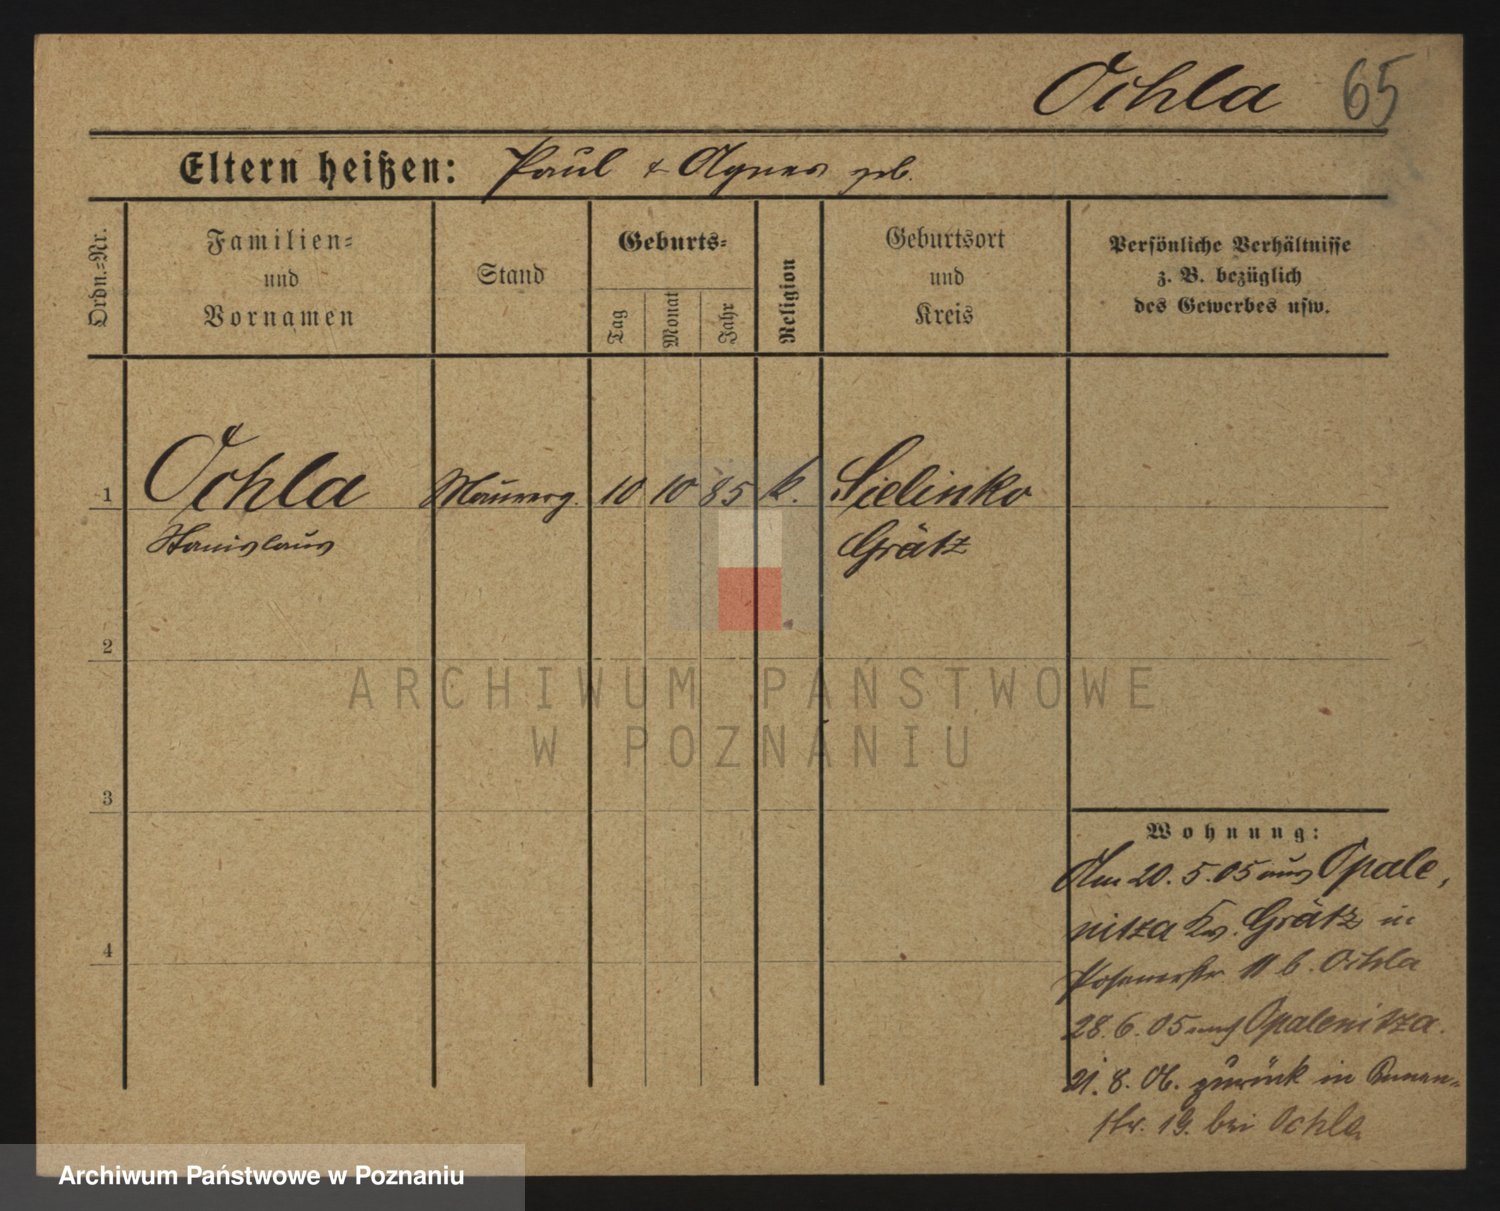 Ochla 65
Eltern heißen: Paul & Agnes geb.
Ordn.=Nr.
Familien=
und
Vornamen
Stand
Geburts=
Tag
Monat
Jahr
Religion
Geburtsort
und
Kreis
Persönliche Verhältnisse
z. B. bezüglich
des Gewerbes usw.
1 Ochla Maurerg. 10 10 85 k. Sielinko
Stanislaus Grätz
2
3
4
Wohnung:
Am 20.5.05 aus Opale,
nitza Kr. Grätz in
Posenerstr. 11 b. Ochla
28.6.05 nach Opalenitza.
21.8.06. zurück in
str. 19. bei Ochla
ARCHIWUM PAŃSTWOWE
W POZNANIU
Archiwum Państwowe w Poznaniu